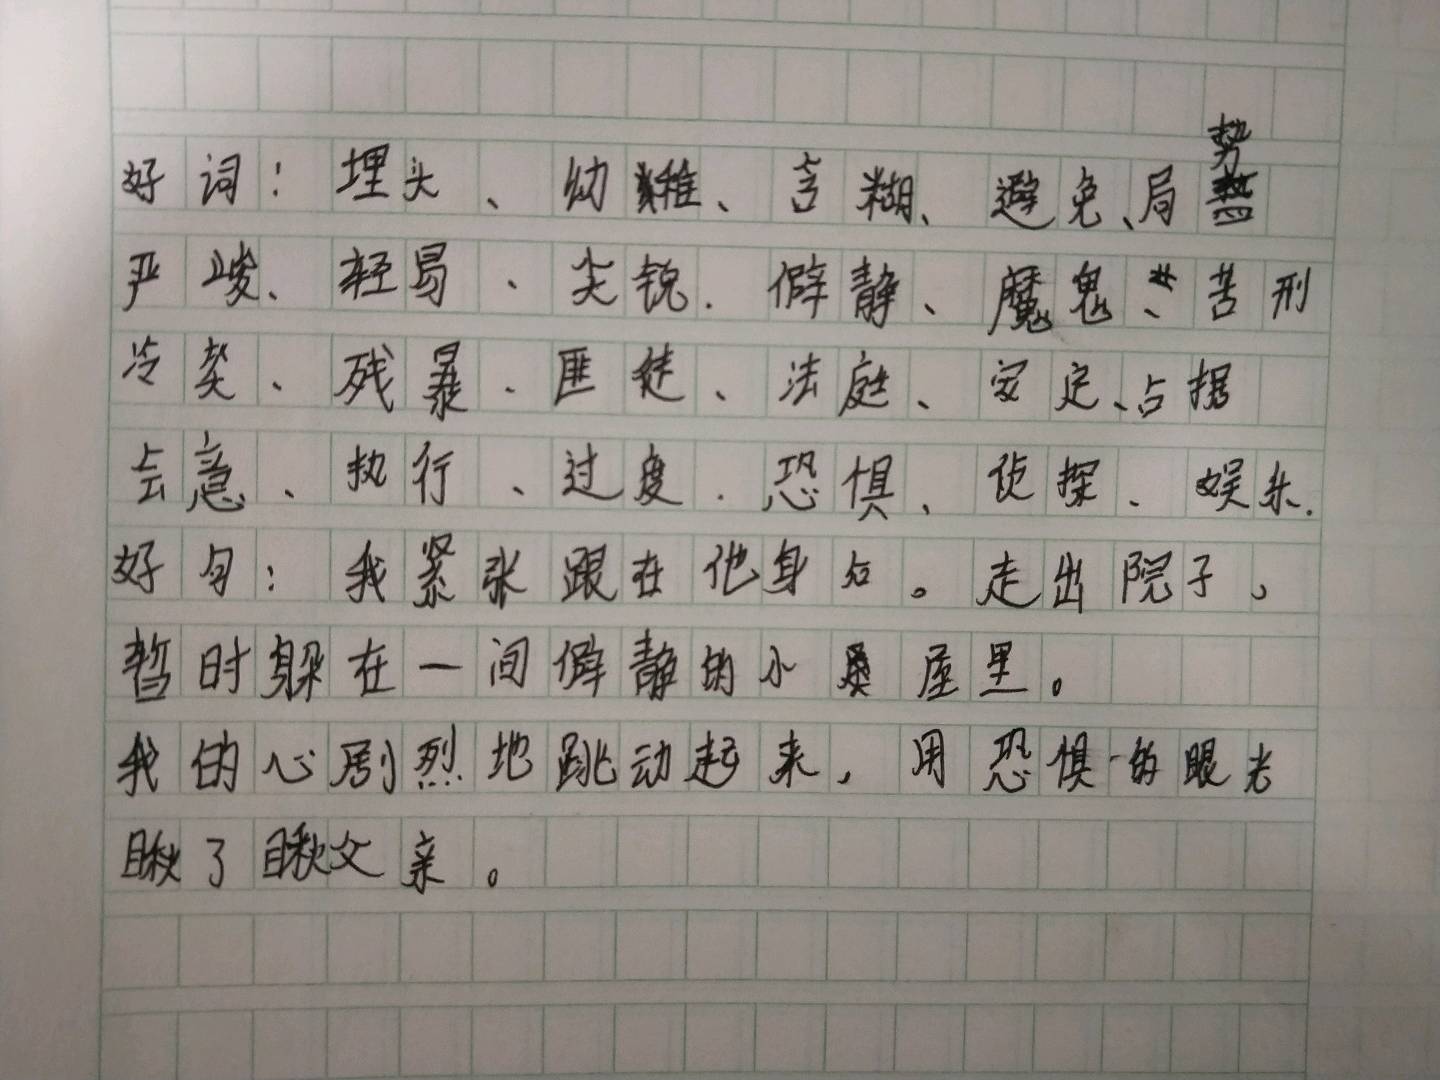 好词：埋头、幼稚、含糊、避免、局势
严峻、轻易、尖锐、僻静、魔鬼、苦刑
冷笑、残暴、匪徒、法庭、安定、占据
会意、执行、过度、恐惧、侦探、娱乐、
好句：我紧张跟在他身后。走出院子，
暂时躲在一间僻静的小屋里。
我的心剧烈地跳动起来，用恐惧的眼光
瞅了瞅父亲。